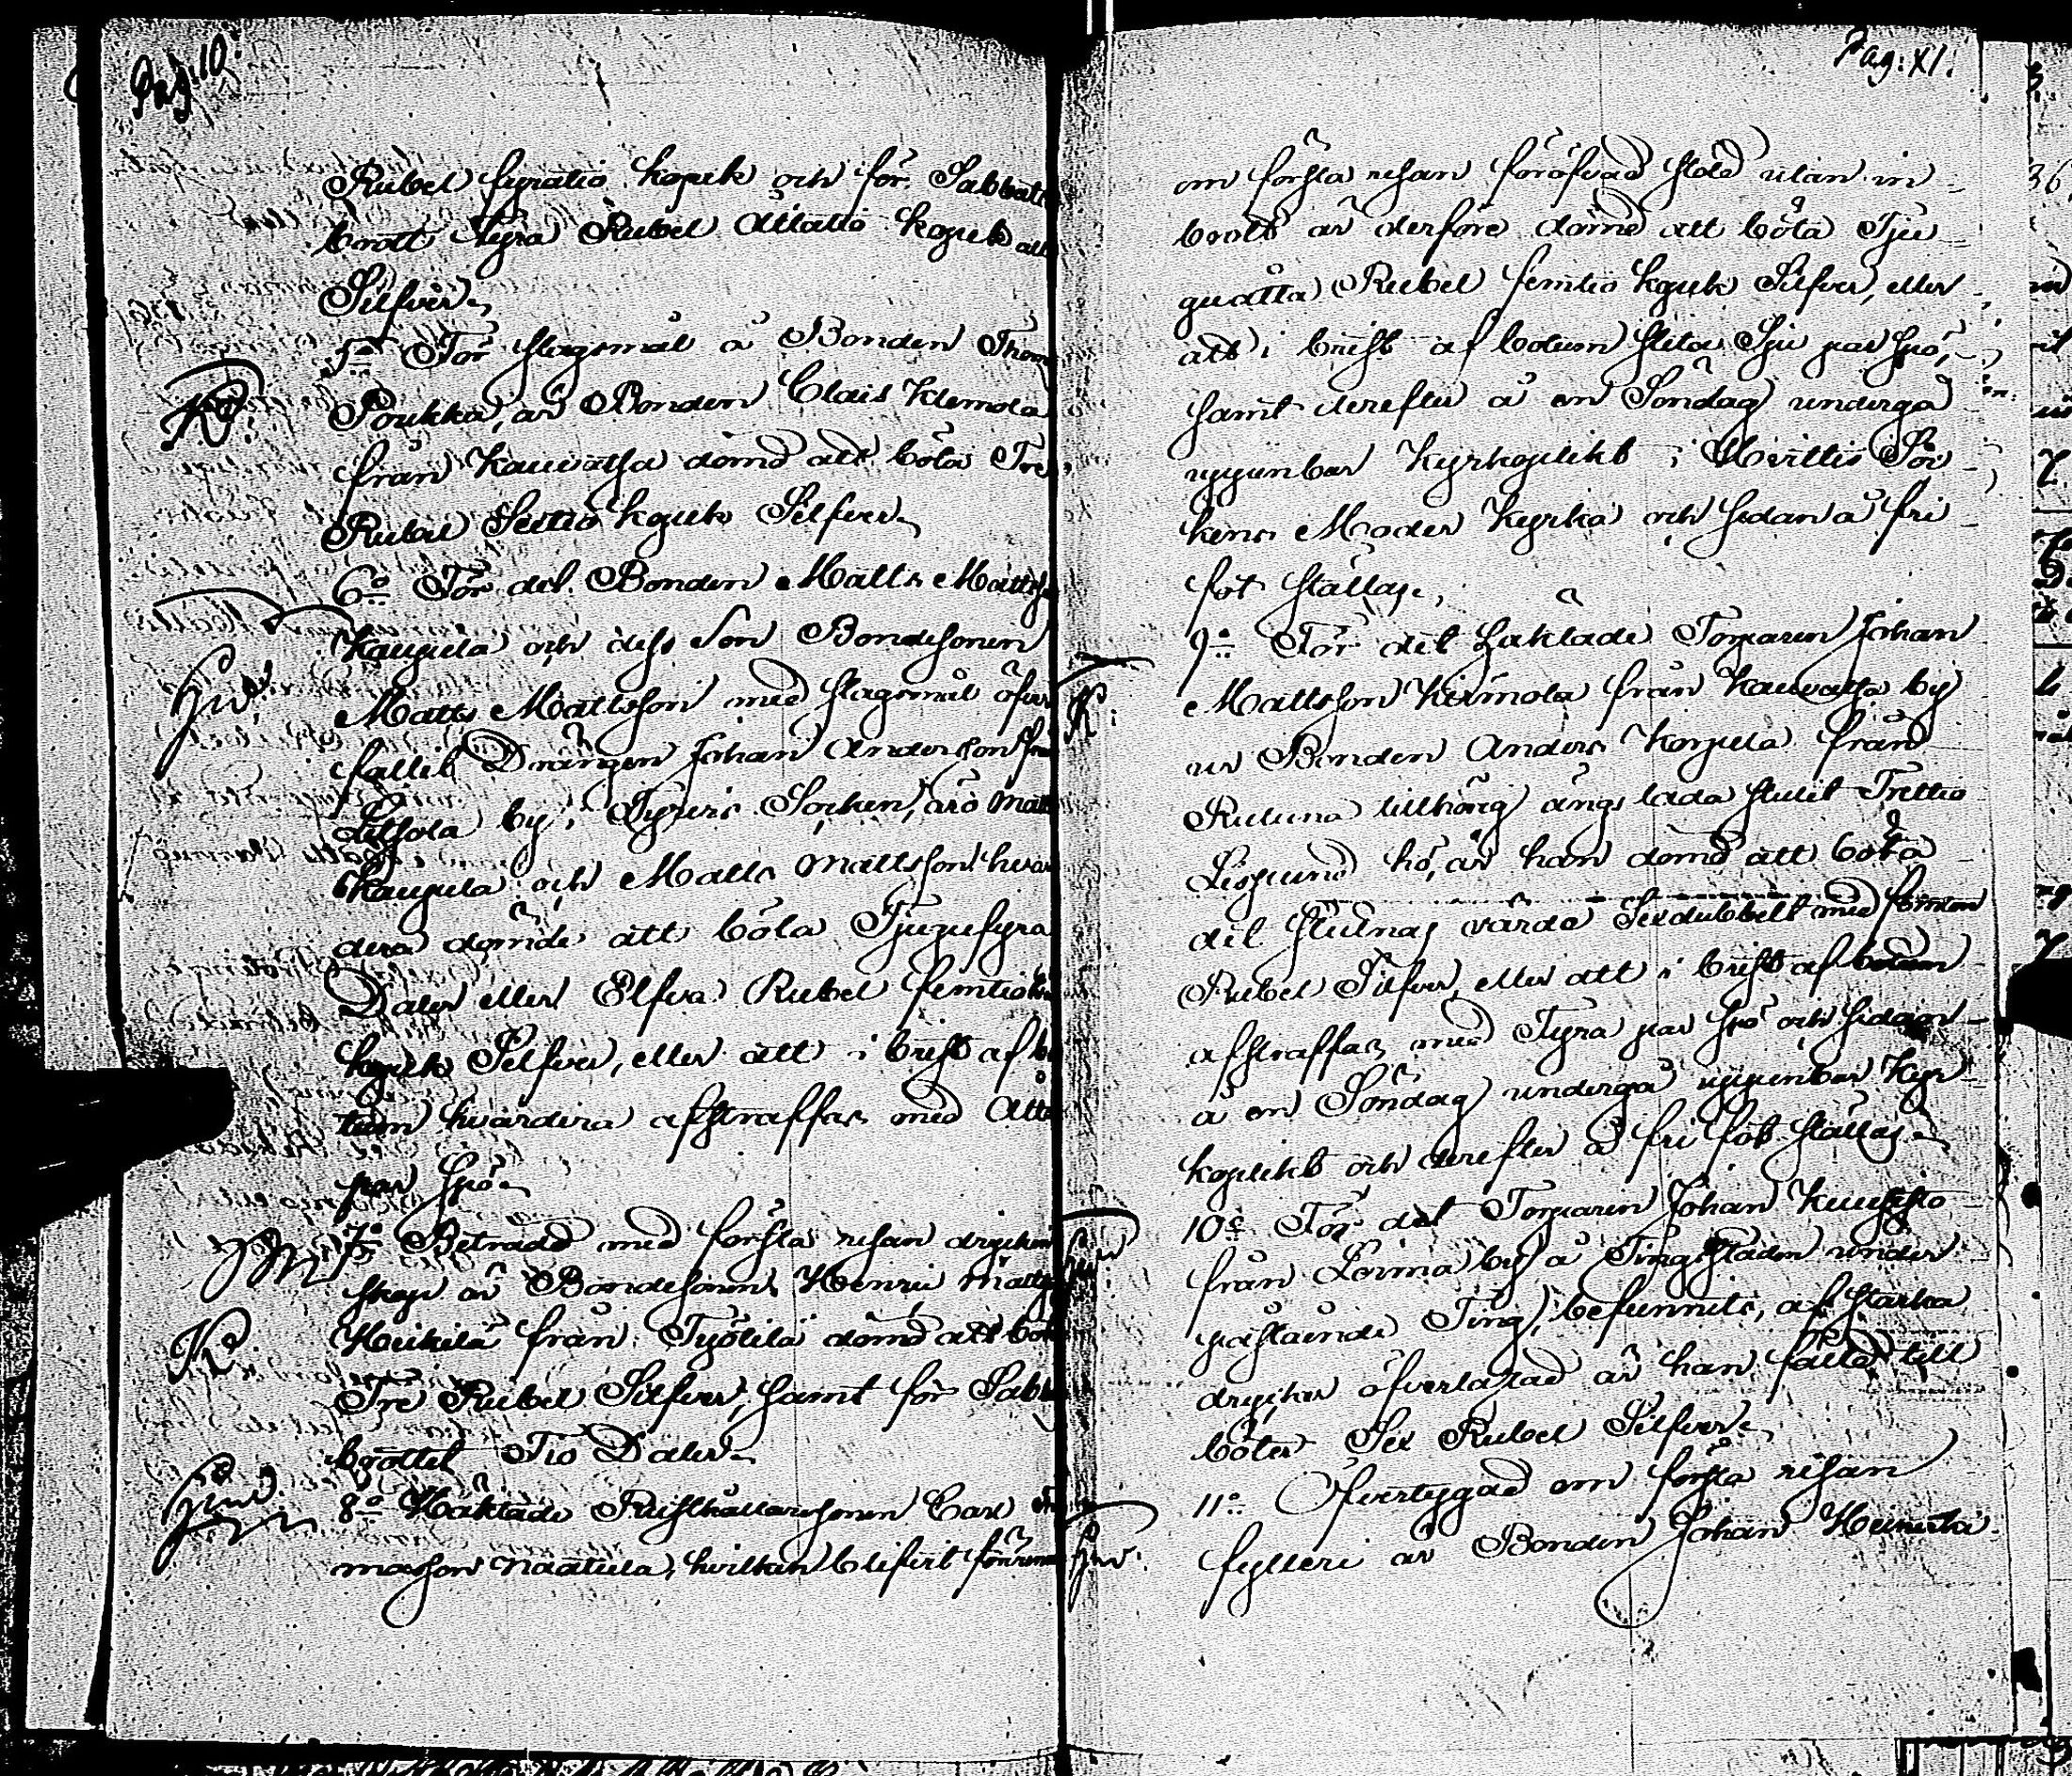 Pag: 10.
Rubel fyratio kopek och för Sabbats
brott Fyra Rubel Åttatio kopek allt
Silfver.
5o För slagsmål å Bonden Thom
Poukka, är Bonden Clais Klemola
från Kauvatsa dömd att böta Tre
Rubel Sextio kopek Silfver.
6o För det Bonden Matts Matts
Kaupila och dess Son Bondesonen
Matts Mattsson med slagsmål öfver
fallit Drängen Johan Andersson från
Leitsola by i Tyrvis Socken, äro Matts
Kaupila och Matts Mattsson hvar
dera dömde att böta Tjugufyra
Daler eller Elfva Rubel femtio
kopek Silfver, eller att i brist af bö
tum hvardera afstraffas med Åtta
par Spö.
7o Beträdd med första resan dryckens
skap är Bondesonen Henric Matts
Heikilä från Työtilä dömd att böta
Tre Rubel Silfver, samt för Sabb
brottet Tio Daler.
8o Häktade Rusthållaresonen Carl
masson Naatula, hvilken blifvit
Kr.
Hvs
Kr.
Pag: XI.
om första resan föröfvad stöld utan in
brott är derföre dömd att böta Tju
guåtta Rubel femtio kopek Silfver, eller
att i brist af botum slita Sju par spö,
samt derefter å en Söndag undergå
uppenbar Kyrkoplikt i Hvittis Soc
kens Moder Kyrka och sedan å fri
fot ställas.
9o För det Häktade Torparen Johan
Mattsson Keimola från Kauvatsa by
ur Bonden Anders Korpela från
Rutuna tillhörig ängs lada stulit Trettio
Lispund hö, är han dömd att böta
det stulnas värde Sexdubbelt med femton
Rubel Silfver, eller att i brist af botum
afstraffas med Fyra par spö och sedan
å en Söndag undergå uppenbar Kyr
koplikt och derefter å fri fot ställas.
10o För det Torparen Johan Kuusisto
från Loima by å Tingsstaden under
påstående Ting, befunnits, af starka
drycker öfverlastad är han fälld till
böter Sex Rubel Silfver.
11o Öfvertygad om första resan
fylleri är Bonden Johan Heinola
K: